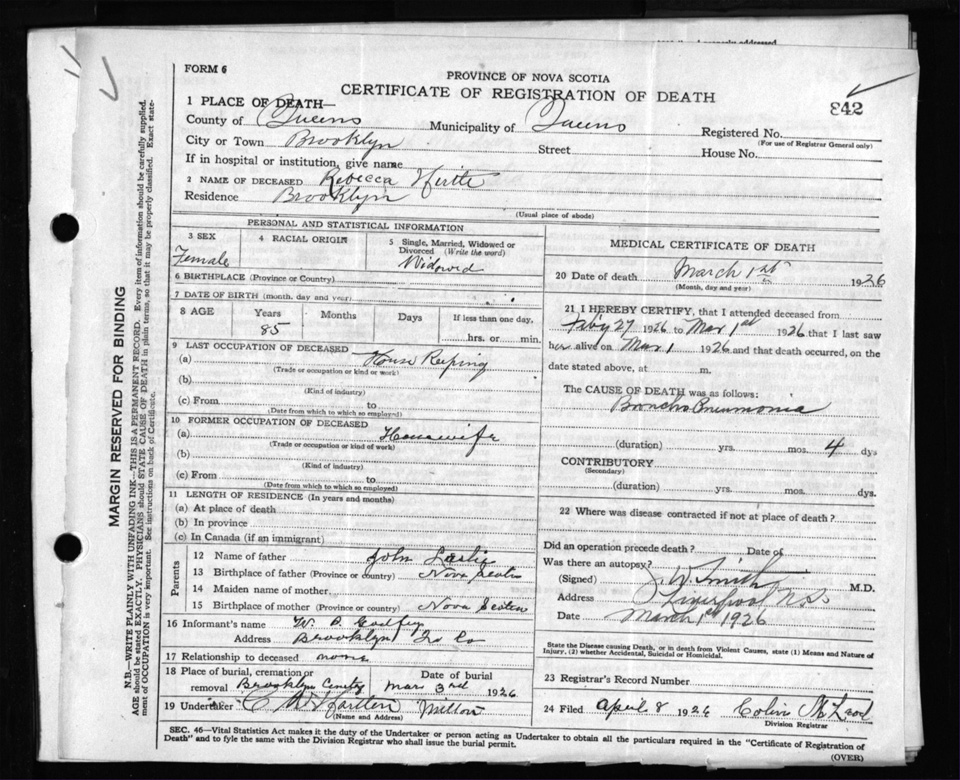 FORM 6
PROVINCE OF NOVA SCOTIA
CERTIFICATE OF REGISTRATION OF DEATH
842
1 PLACE OF DEATH—
County of Queens Municipality of Queens Registered No.
(For use of Registrar General only)
City or Town Brooklyn Street House No.
If in hospital or institution, give name
2 NAME OF DECEASED Rebecca
Residence Brooklyn
(Usual place of abode)
PERSONAL AND STATISTICAL INFORMATION
3 SEX
Female
4 RACIAL ORIGIN
5 Single, Married, Widowed or Divorced (Write the word)
Widowed
6 BIRTHPLACE (Province or Country)
7 DATE OF BIRTH (month, day and year)
8 AGE Years Months Days If less than one day,
85 hrs. or min.
9 LAST OCCUPATION OF DECEASED
(a) House Keeping
(Trade or occupation or kind or work)
(b)
(Kind of industry)
(c) From to
(Date from which to which so employed)
10 FORMER OCCUPATION OF DECEASED
(a) Housewife
(Trade or occupation or kind of work)
(b)
(Kind of industry)
(c) From to
(Date from which to which so employed)
11 LENGTH OF RESIDENCE (In years and months)
(a) At place of death
(b) In province
(c) In Canada (if an immigrant)
Parents
12 Name of father John Leslie
13 Birthplace of father (Province or country) Nova Scotia
14 Maiden name of mother
15 Birthplace of mother (Province or country) Nova Scotia
16 Informant's name W. P. Godfrey
Address Brooklyn Co
17 Relationship to deceased none
18 Place of burial, cremation or removal Date of burial
Brooklyn Cmty Mar 3rd 1926
19 Undertaker Milton
(Name and Address)
MEDICAL CERTIFICATE OF DEATH
20 Date of death March 1st 1926
(Month, day and year)
21 I HEREBY CERTIFY, that I attended deceased from
Feby 27 1926 to Mar 1st 1926 that I last saw
her alive on Mar 1 1926 and that death occurred, on the
date stated above, at m.
The CAUSE OF DEATH was as follows:
Broncho Pneumonia
(duration) yrs. mos. 4 dys
CONTRIBUTORY
(Secondary)
(duration) yrs. mos. dys.
22 Where was disease contracted if not at place of death?
Did an operation precede death? Date of
Was there an autopsy?
(Signed) J. W. Smith M.D.
Address Liverpool, N.S
Date March 1st 1926
State the Disease causing Death, or in death from Violent Causes, state (1) Means and Nature of
Injury, (2) whether Accidental, Suicidal or Homicidal.
23 Registrar's Record Number
24 Filed April 8 1926 Colin McLeod
Division Registrar
SEC. 46—Vital Statistics Act makes it the duty of the Undertaker or person acting as Undertaker to obtain all the particulars required in the "Certificate of Registration of
Death" and to fyle the same with the Division Registrar who shall issue the burial permit.
(OVER)
MARGIN RESERVED FOR BINDING
N.B.—WRITE PLAINLY WITH UNFADING INK—THIS IS A PERMANENT RECORD. Every item of information should be carefully supplied.
AGE should be stated EXACTLY. PHYSICIANS should STATE CAUSE OF DEATH in plain terms, so that it may be properly classified. Exact state-
ment of OCCUPATION is very important. See instructions on back of Certificate.